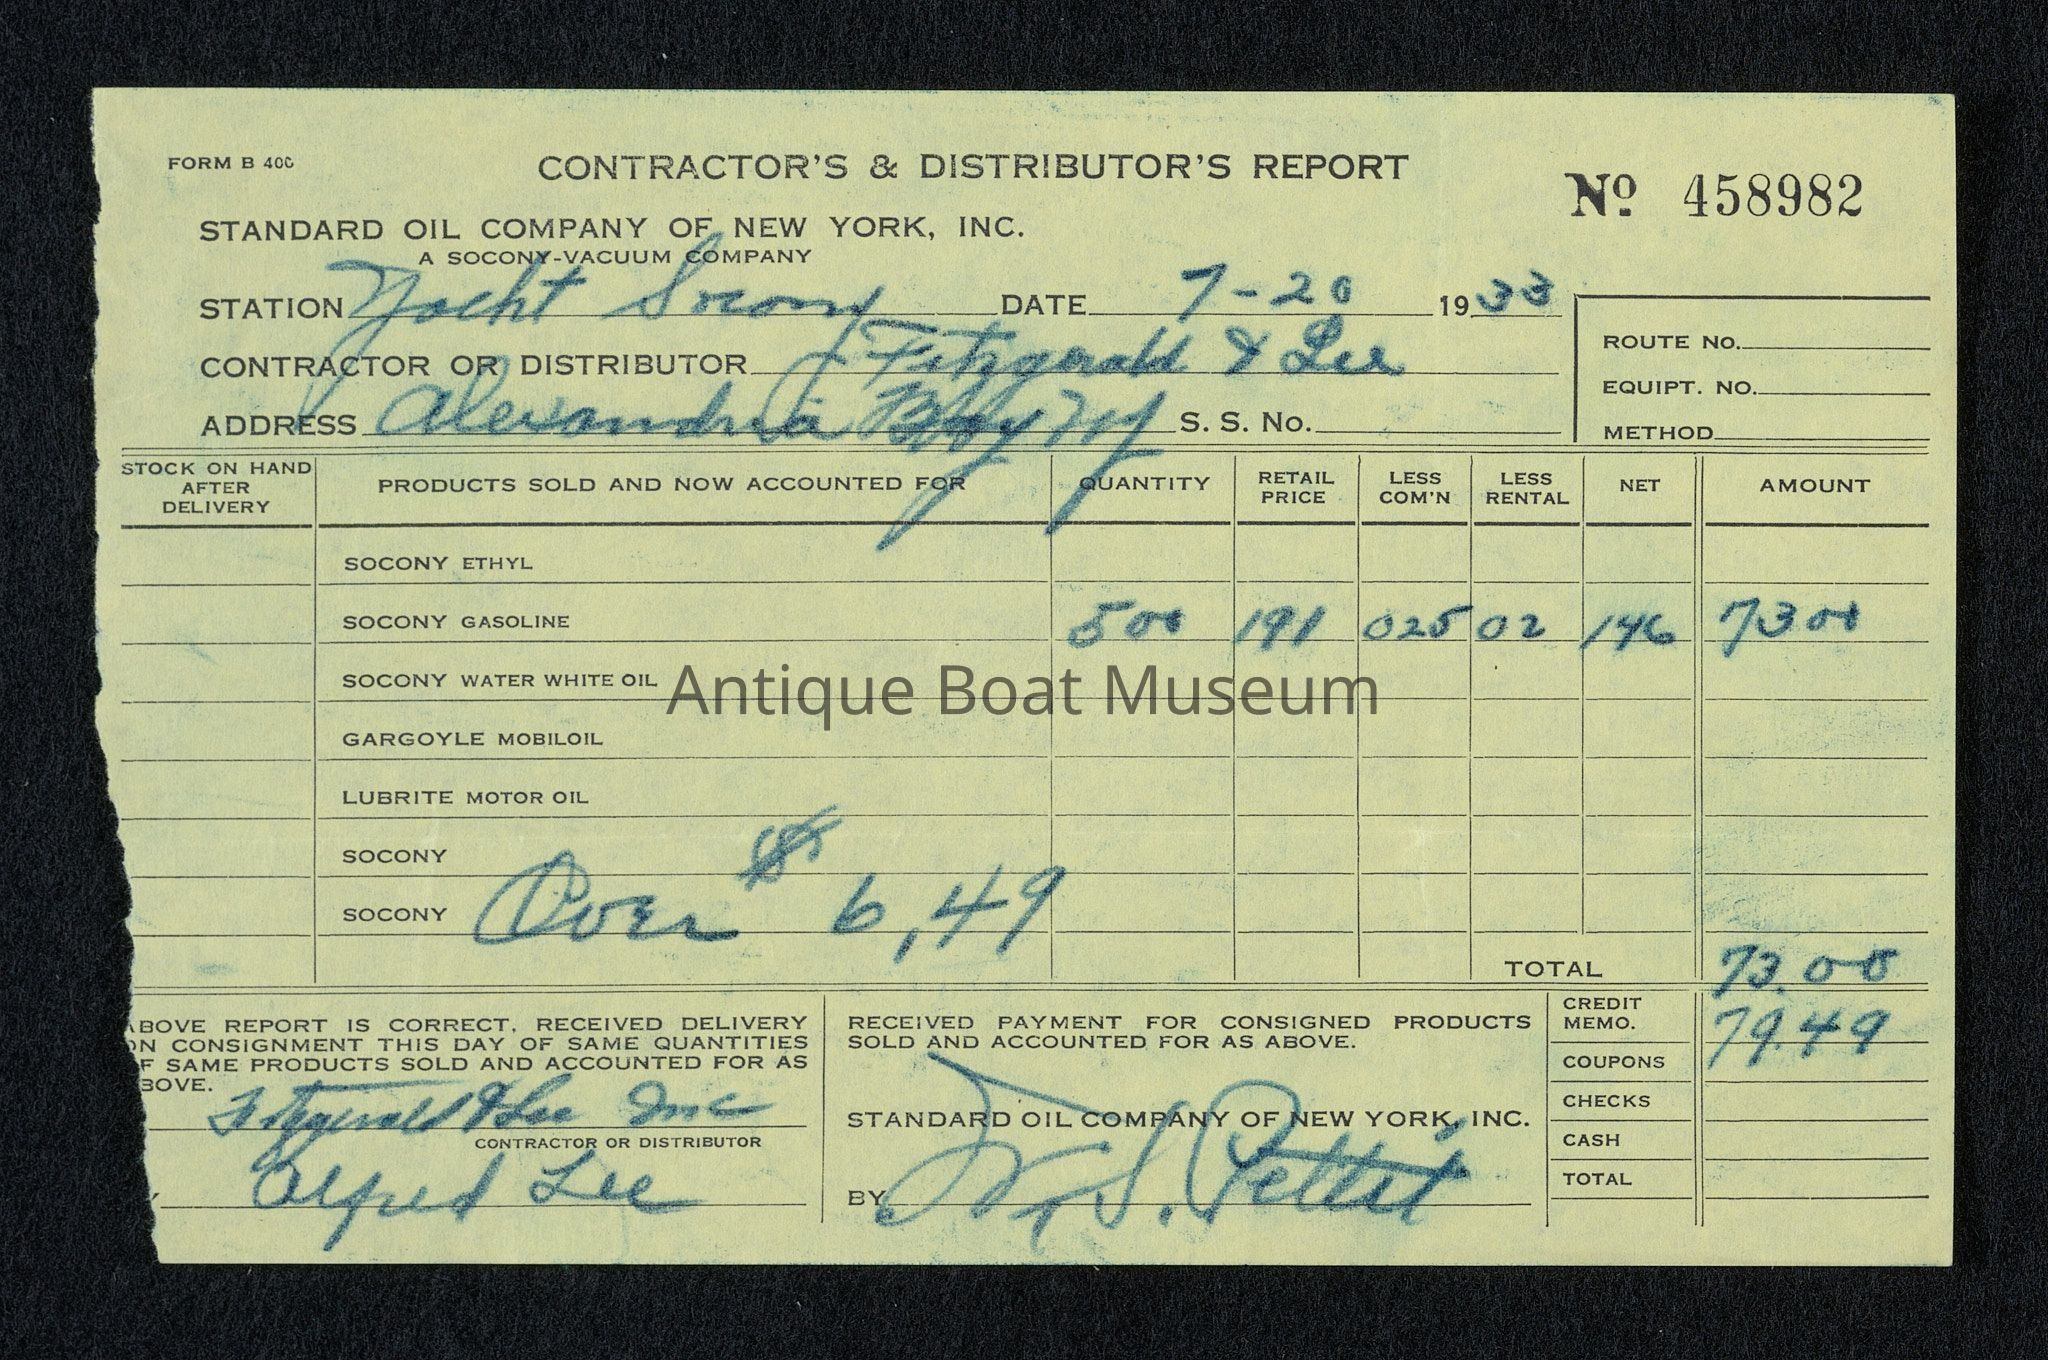 FORM B 400
CONTRACTOR'S & DISTRIBUTOR'S REPORT
Nº 458982
STANDARD OIL COMPANY OF NEW YORK, INC.
A SOCONY-VACUUM COMPANY
STATION Yacht Socony DATE 7-20 1933
CONTRACTOR OR DISTRIBUTOR Fitzgerald & Lee
ADDRESS Alexandria Bay NY S. S. No.
ROUTE No.
EQUIPT. NO.
METHOD
STOCK ON HAND AFTER DELIVERY PRODUCTS SOLD AND NOW ACCOUNTED FOR QUANTITY RETAIL PRICE LESS COM'N LESS RENTAL NET AMOUNT
SOCONY ETHYL
SOCONY GASOLINE 500 191 025 02 146 73 00
SOCONY WATER WHITE OIL
Antique Boat Museum
GARGOYLE MOBILOIL
LUBRITE MOTOR OIL
SOCONY
SOCONY Over $ 6,49
TOTAL 73.00
CREDIT MEMO. 79.49
COUPONS
CHECKS
CASH
TOTAL
ABOVE REPORT IS CORRECT, RECEIVED DELIVERY
ON CONSIGNMENT THIS DAY OF SAME QUANTITIES
OF SAME PRODUCTS SOLD AND ACCOUNTED FOR AS
BOVE.
Fitzgerald & Lee Inc
CONTRACTOR OR DISTRIBUTOR
Alfred Lee
RECEIVED PAYMENT FOR CONSIGNED PRODUCTS
SOLD AND ACCOUNTED FOR AS ABOVE.
STANDARD OIL COMPANY OF NEW YORK, INC.
BY S. Pettit